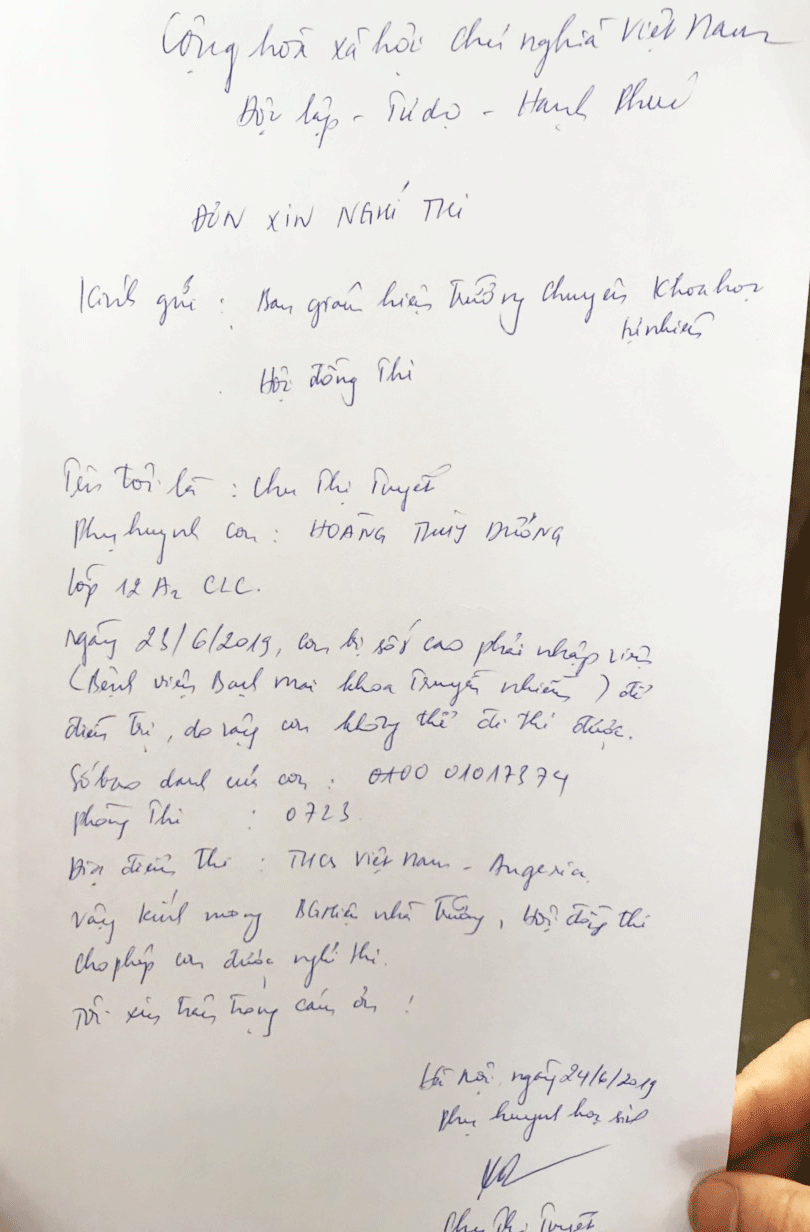 Cộng hoà xã hội chủ nghĩa Việt Nam
Độc lập - Tự do - Hạnh Phúc
ĐƠN XIN NGHỈ THI
Kính gửi : Ban giám hiệu Trường Chuyên Khoa học
tự nhiên
Hội đồng Thi
Tên tôi là : Chu Thị Tuyết
Phụ huynh con : HOÀNG THUỲ DƯƠNG
Lớp 12 A2 CLC.
Ngày 23/6/2019, con bị sốt cao phải nhập viện
(Bệnh viện Bạch Mai khoa Truyền nhiễm) để
điều trị, do vậy con không thể đi thi được.
Số báo danh của con : 01017374
Phòng Thi : 0723
Địa điểm thi : THCS Việt Nam - Angeria.
Vậy kính mong BGHiệu nhà trường, Hội đồng thi
cho phép con được nghỉ thi.
Tôi xin trân trọng cám ơn !
Hà Nội, ngày 24/6/2019
Phụ huynh học sinh
Chu Thị Tuyết